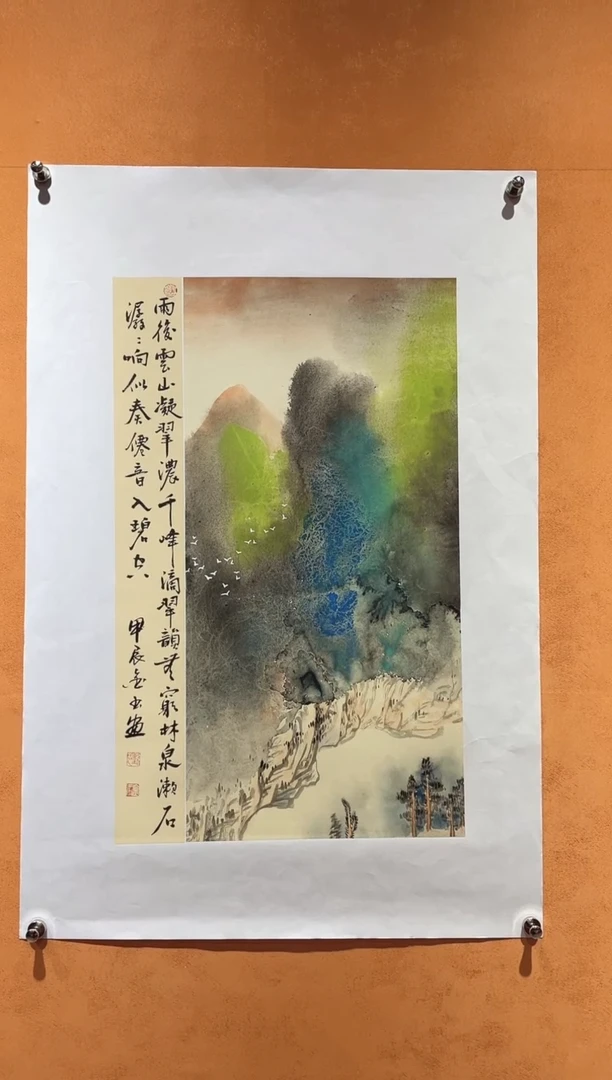 雨後雲山凝翠濃千峰滴翠韻無窮林泉漱石
潺﹕响似奏僊音入碧空
甲辰 書畫